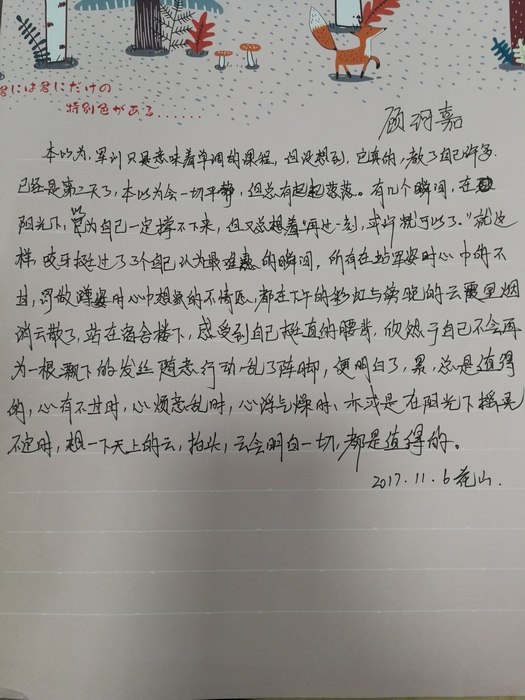 君には君にだけの
特別色がある......
顾 嘉
本以为，军训只是意味着单调的课程，但没想到，它真的，教了自己许多
已经是第二天了，本以为会一切平静，但总有起起落落。有几个瞬间，在
阳光下，以为自己一定撑不下来，但又总想着“再过一刻，或许就可以了。”就这
样，咬牙挺过了3个自己认为最难熬的瞬间，所有在站军姿时心中的不
甘，罚做蹲姿时心中想哭的不情愿，都在下午的彩虹与傍晚的云霞里烟
消云散了，站在宿舍楼下，感受到自己挺直的腰背，欣然于自己不会再
为一根飘下的发丝随意行动乱了阵脚，便明白了，累，总是值得
的，心有不甘时，心烦意乱时，心浮气燥时，亦或是在阳光下摇晃
不定时，想一下天上的云，抬头，云会明白一切，都是值得的。
2017.11.6 花山.